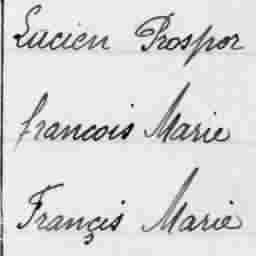 Lucien Prosper
francois Marie
Françis Marie